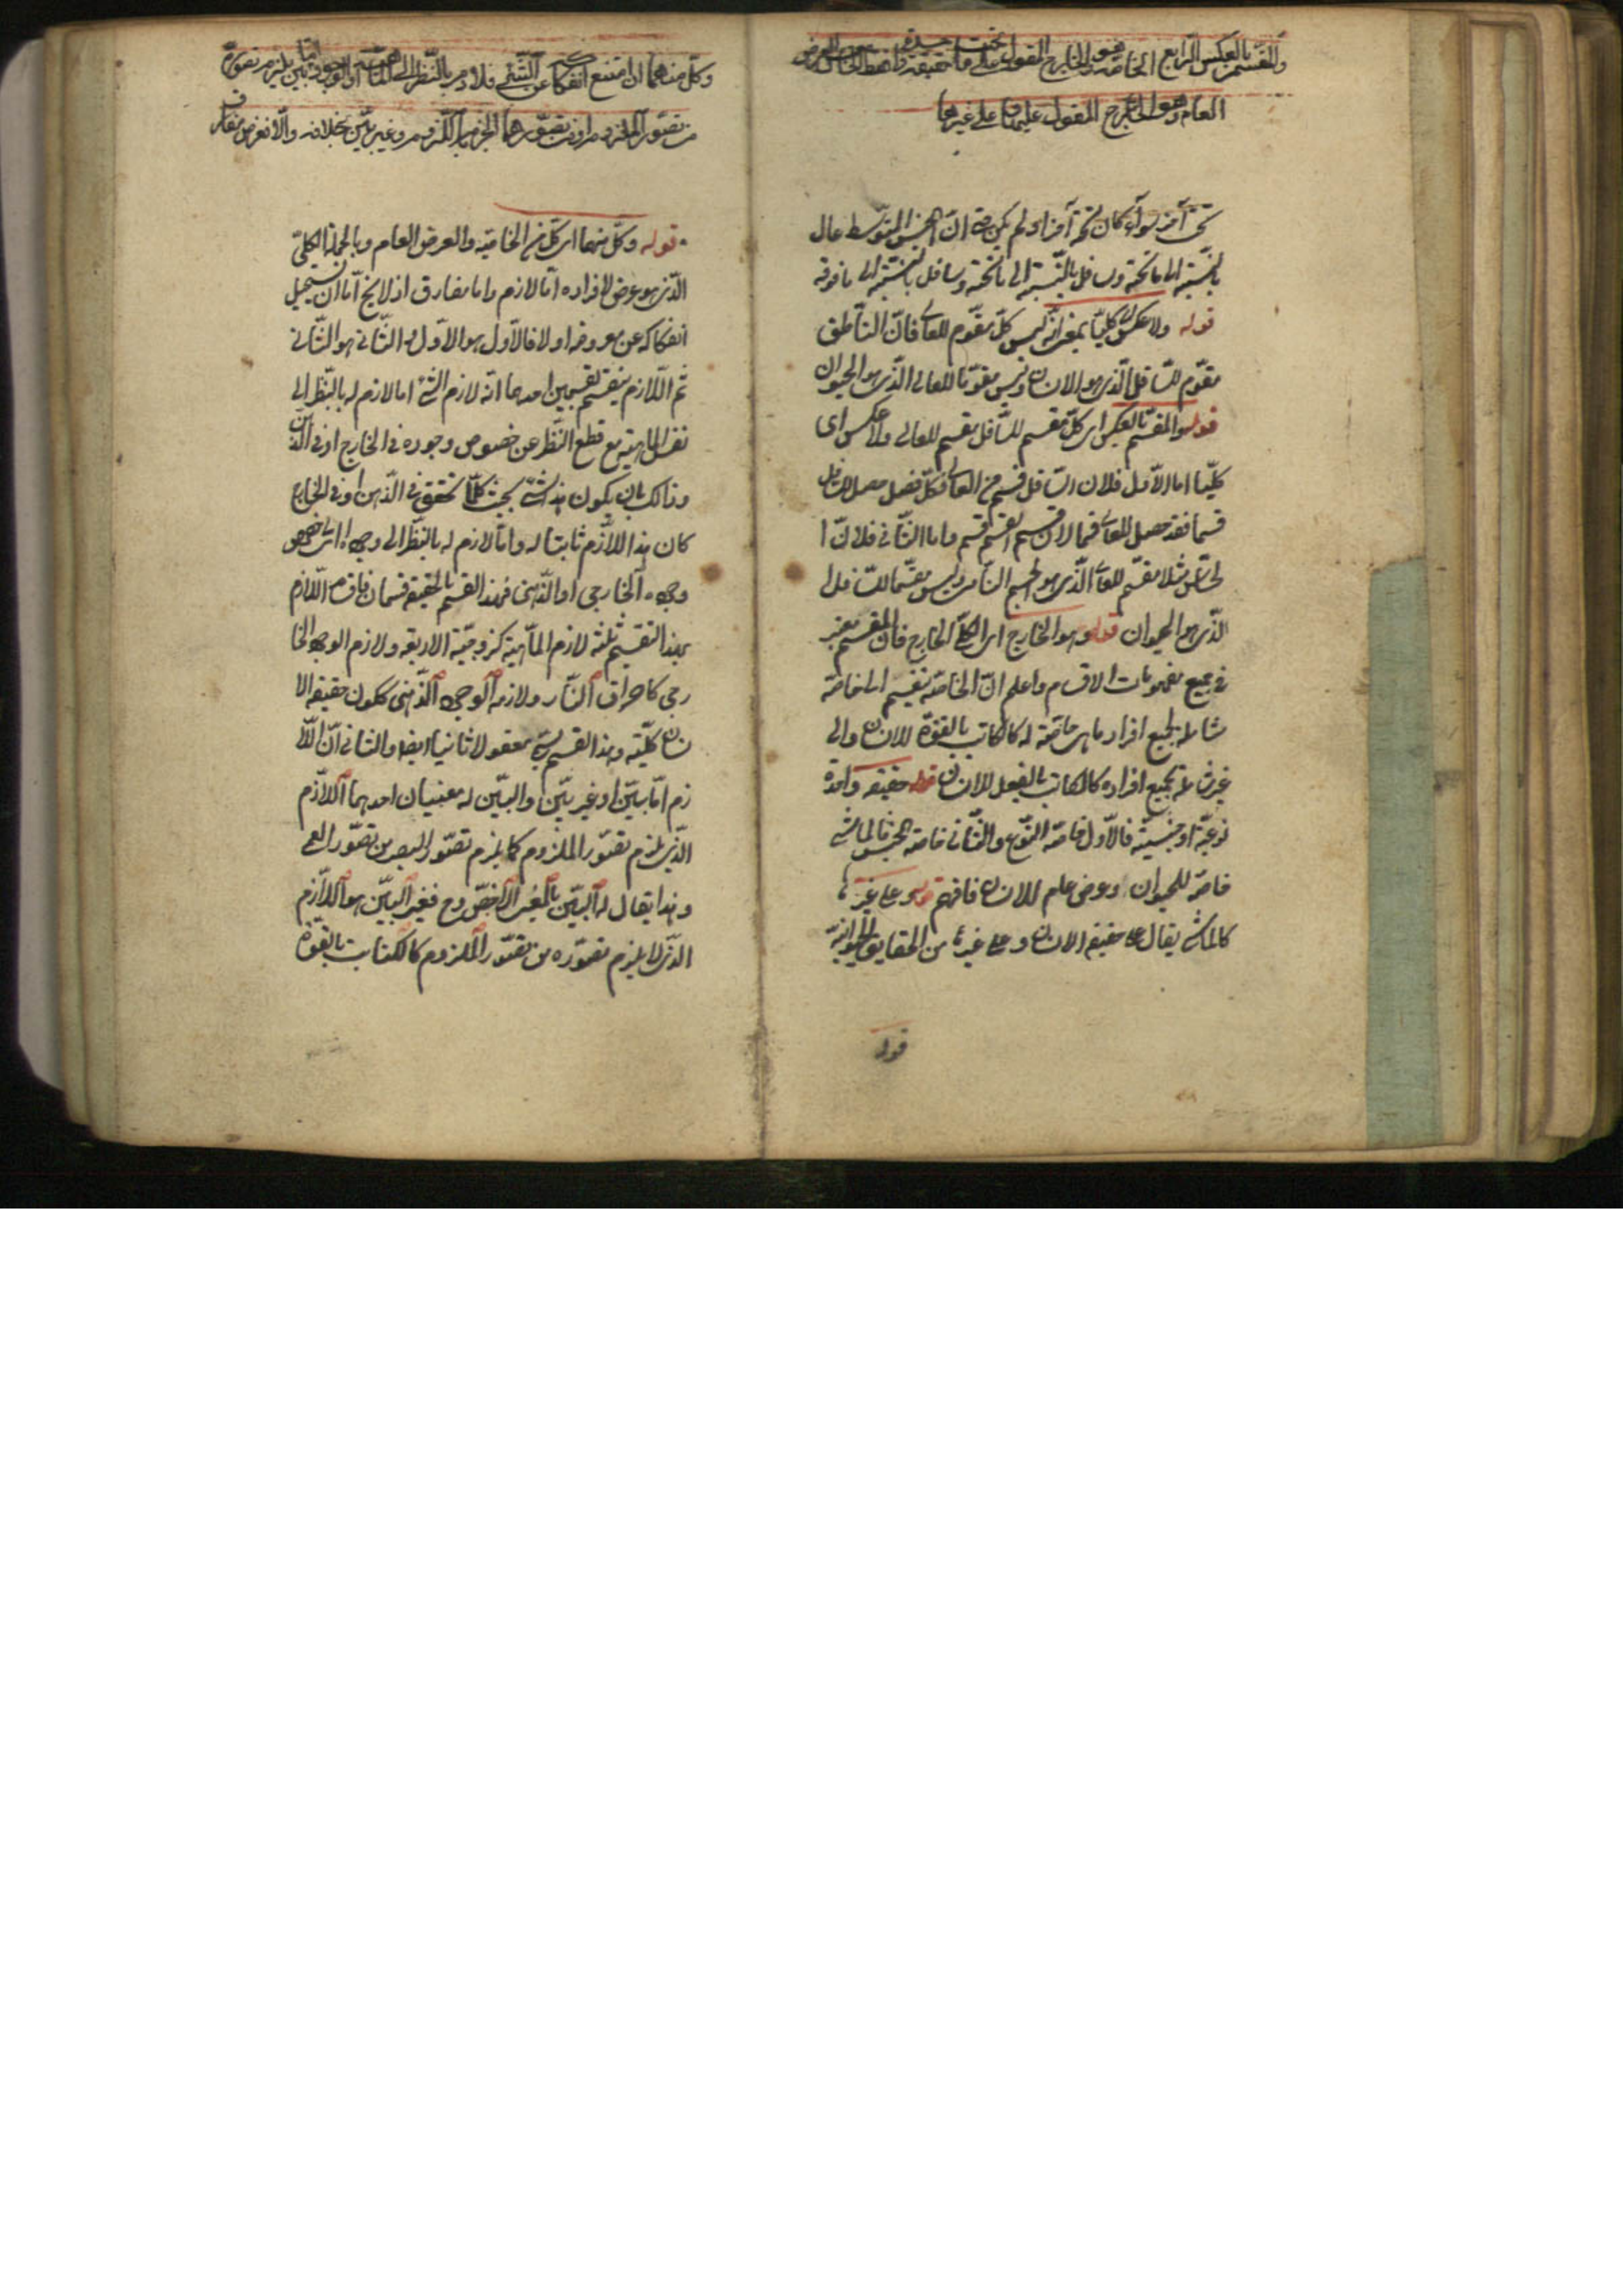 والمقسم بالعكس الرابع الخاصة وهو الخارج المقول على ما تحت حقيقة واحدة فقط الخامس العرض
العام وهو الخارج المقول عليها و على غيرها
تحت آخر سواء كان تحته آخر او لم يكن حتى انّ الجنس المتوسط عال
بالنسبة الى ما تحته وسافل بالنسبة الى ما فوقه
قوله ولا عكس اى كليّا بمعنى انّه ليس كلّ مقوّم للسافل مقوّم للعالى فانّ الناطق
مقوّم للسّافل الّذى هو الانسان وليس مقوّما للعالى الّذى هو الحيوان
قوله والمقسّم بالعكس اى كلّ مقسم للسّافل مقسم للعالى ولا عكس اى
كليّا اما الاوّل فلان السّافل قسم من العالى فكلّ فصل حصل للسّافل
قسما فقد حصل للعالى قسما لان قسم القسم قسم واما الثّانى فلانّ ا
لحسّاس مثلا مقسّم للعالى الّذى هو الجسم النّامى وليس مقسّما للسّافل ا
الّذى هو الحيوان قوله وهو الخارج اى الكلّى الخارج فانّ المقسم معتبر
فى جميع مفهومات الاقسام واعلم انّ الخاصّة تنقسم الى خاصّة
شاملة لجميع افراد ما هى خاصّة له كالكاتب بالقوّة للانسان والى
غير شاملة لجميع افراده كالكاتب بالفعل للانسان قوله حقيقة واحدة
نوعيّة او جنسيّة فالاوّل خاصّة النّوع والثّانى خاصّة الجنس فالماشى
خاصّة للحيوان وعرض عام للانسان فافهم قوله وعلى غيرها
كالماشى يقال على حقيقة الانسان وعلى غيرها من الحقايق الحيوانيّة
قوله
وكلّ منهما ان امتنع انفكاكه عن الشّئ فلازم بالنّظر الى الماهيّة او الوجود امّا بيّن يلزم تصوّره
من تصوّر الملزوم او من تصوّرهما الجزم باللّزوم وغير بيّن بخلافه والّا فعرض مفارق
قوله وكلّ منهما اى كلّ من الخاصّة والعرض العام وبالجملة الكلّى
الّذى هو عرضى لافراده امّا لازم واما مفارق اذ لا يخ امّا ان يستحيل
انفكاكه عن معروضه اولا فالاوّل هو الاوّل والثّانى هو الثّانى
ثم اللّازم ينقسم بتقسيمين احدهما انّه لازم الشّئ اما لازم له بالنّظر الى
نفس الماهيّة مع قطع النّظر عن خصوص وجوده فى الخارج او فى الذّهن
وذالك بان يكون هذا الشئ بحيث كلّما تحقق فى الذّهن او فى الخارج
كان هذا اللّازم ثابتا له وامّا لازم له بالنّظر الى وجوده اى خصوص
وجوده الخارجى او الذّهنى فهذا القسم بالحقيقة قسمان فاقسام اللّازم
بهذا التّقسيم ثلثة لازم الماهيّة كزوجيّة الاربعة ولازم الوجود الخا
رجى كاحراق النّار ولازم الوجود الذّهنى ككون حقيقة الا
نسان كليّة وهذا القسم يسمّى معقولا ثانيا ايضا والثانى انّ اللّا
زم امّا بيّن او غير بيّن والبيّن له معنيان احدهما اللازّم
الّذى يلزم تصوّره من تصوّر الملزوم كما يلزم تصوّر البصر من تصوّر العمى
وهذا يقال له البيّن بالمعنى الاخصّ وح فغير البيّن هو اللازّم
الّذى لا يلزم تصوّره من تصوّر الملزوم كالكتابة بالقوّة